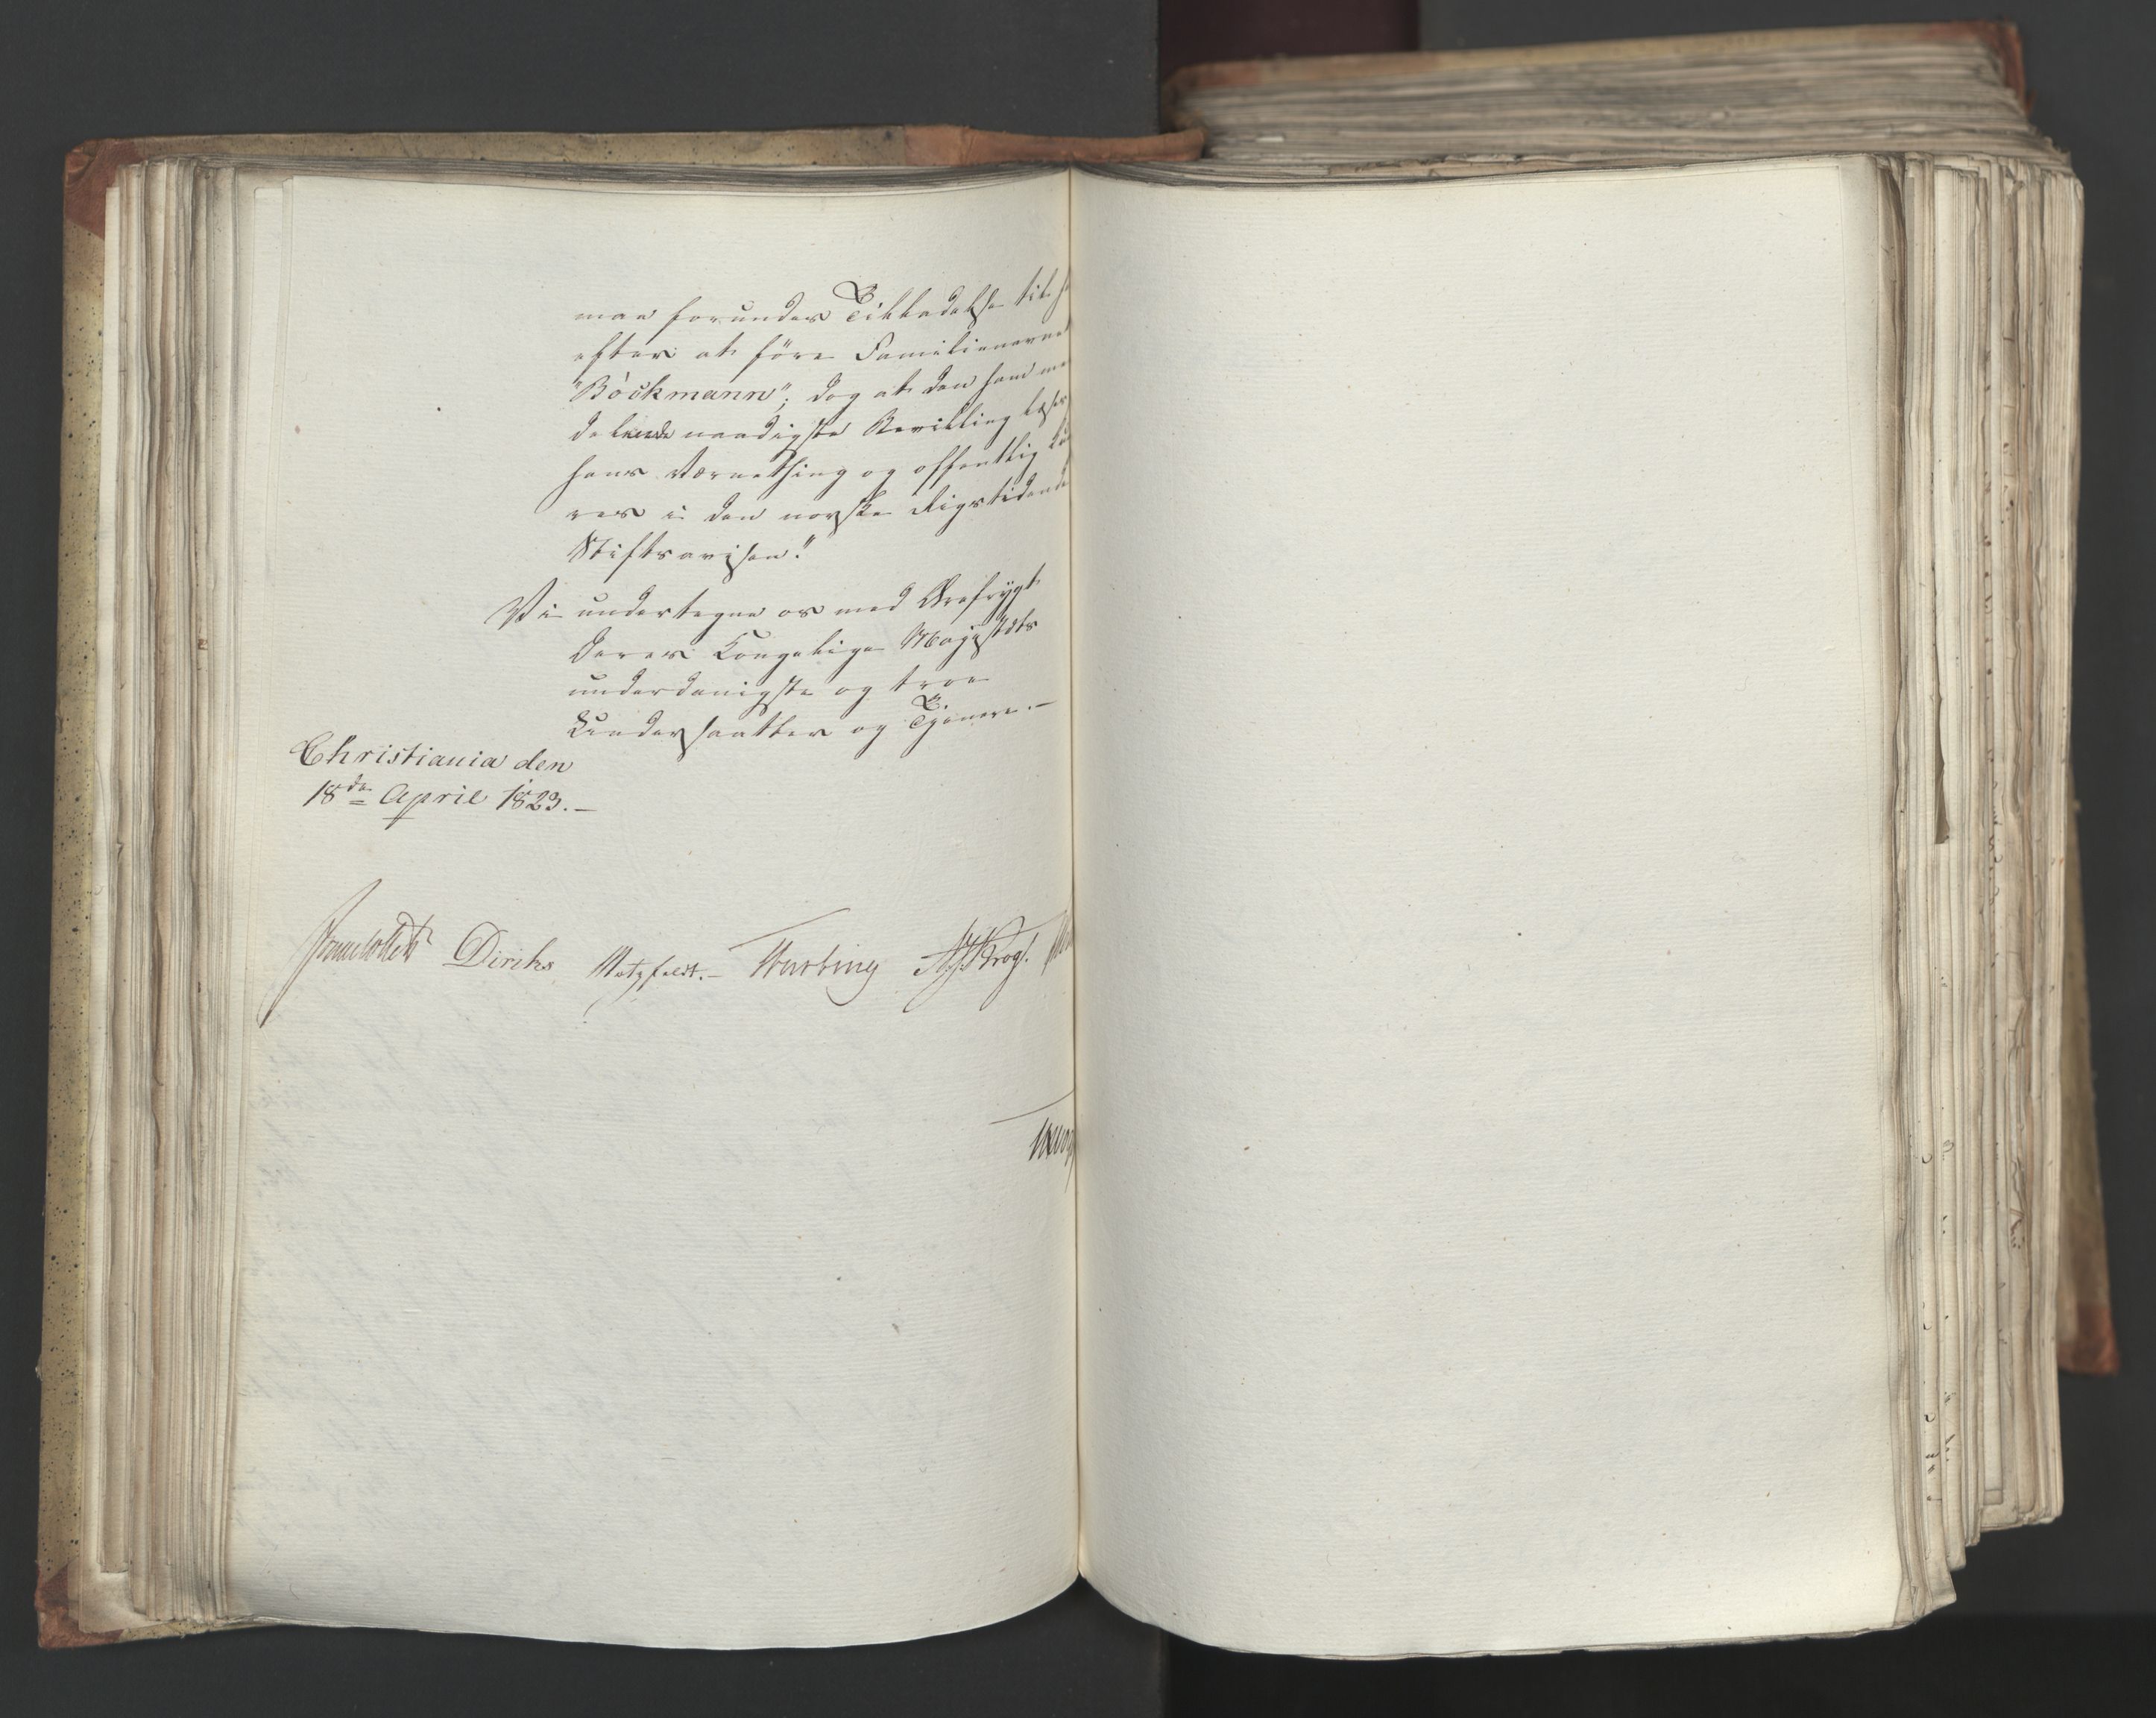 maa forundes Tilladelse til h
efter at före Familienavne
"Böckmann"; dog at den ham me
delende naadigste Bevilling læses
hans Værnething og offentlig ki
res i den norske Rigstidende
Stiftsavisen."
Vi undertegne os med Ærefrygt
Deres Kongelige Majestæts
underdanigste og troe
Undersaatter og Tjenere.—
Christiania den
18de April 1823.—
Diriks Motzfeldt.— Krogh.